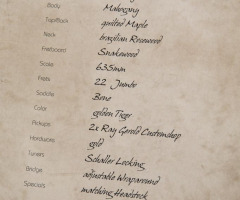 Body Mahogany
Top/Back quilted Maple
Neck brazilian Rosewood
Fretboard Snakewood
Scale 635mm
Frets 22 Jumbo
Saddle Bone
Color golden Tiger
Pickups 2x Ray Gerold Customshop
Hardware gold
Tuners Schaller Locking
Bridge adjustable Wraparound
Specials matching Headstock